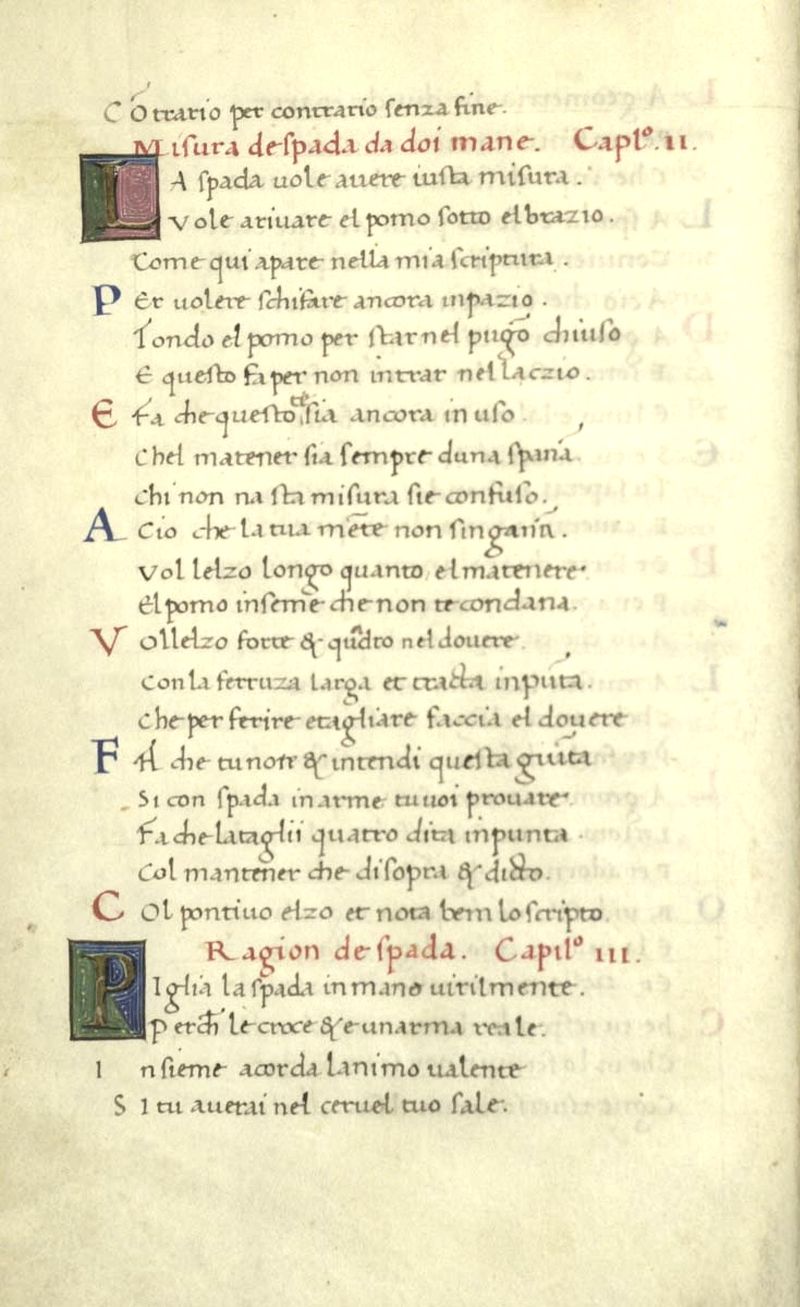 C Ōtrario per contrario senza fine.
Misura de spada da doi mane. Capl⁰. II.
LA spada uole auere iusta misura.
Vole ariuare el pomo sotto el brazio.
Come qui apare nella mia scriptura.
Per uolere schifare ancora inpazio.
Tondo el pomo per star nel pugō chiuso
E questo fa per non intrar nel laczio.
E fa che questo te sia ancora in uso
Chel matener sia sempre duna spāna
chi non na sta misura sie confuso.
A Cio che la tua mēte non singāna.
Vol lelzo longo quanto el matenere.
El pomo inseme che non te condana.
Vollelzo forte & quadro nel douere
Con la ferruza larga et tracta inpūta.
Che per ferire e tagliare faccia el douere
FA che tu noti & intendi questa giūta
Si con spada in arme tu uoi prouare.
Fa che la taglii quatro dita in punta
Col mantener che disopra & dicto.
COl pontiuo elzo et nota bem lo scripto
Ragion de spada. Capitl⁰ III.
PIglia la spada in mano uirilmente.
perch' le croce & e un arma reale.
I nsieme acorda lanimo ualente
S I tu auerai nel ceruel tuo sale.